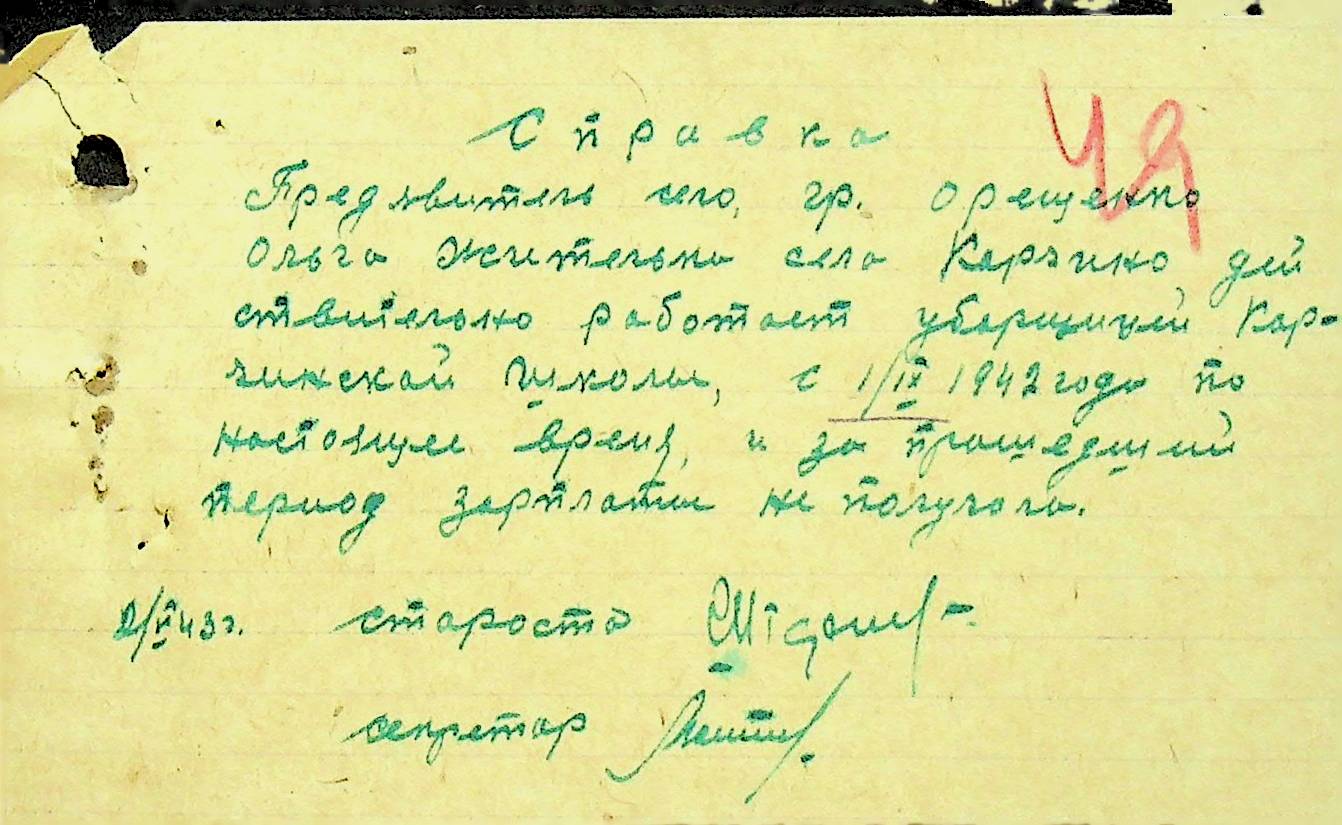 Справка
49
Предявитель сего, гр. Орещенко
Ольга жителька села Карчино дей
ствительно работает уборщицей Кар-
чинской школы, с 1/IX 1942 года по
настоящее время, и за прошедший
период зарплаты не получала.
2/VI 43 г. староста
секретар